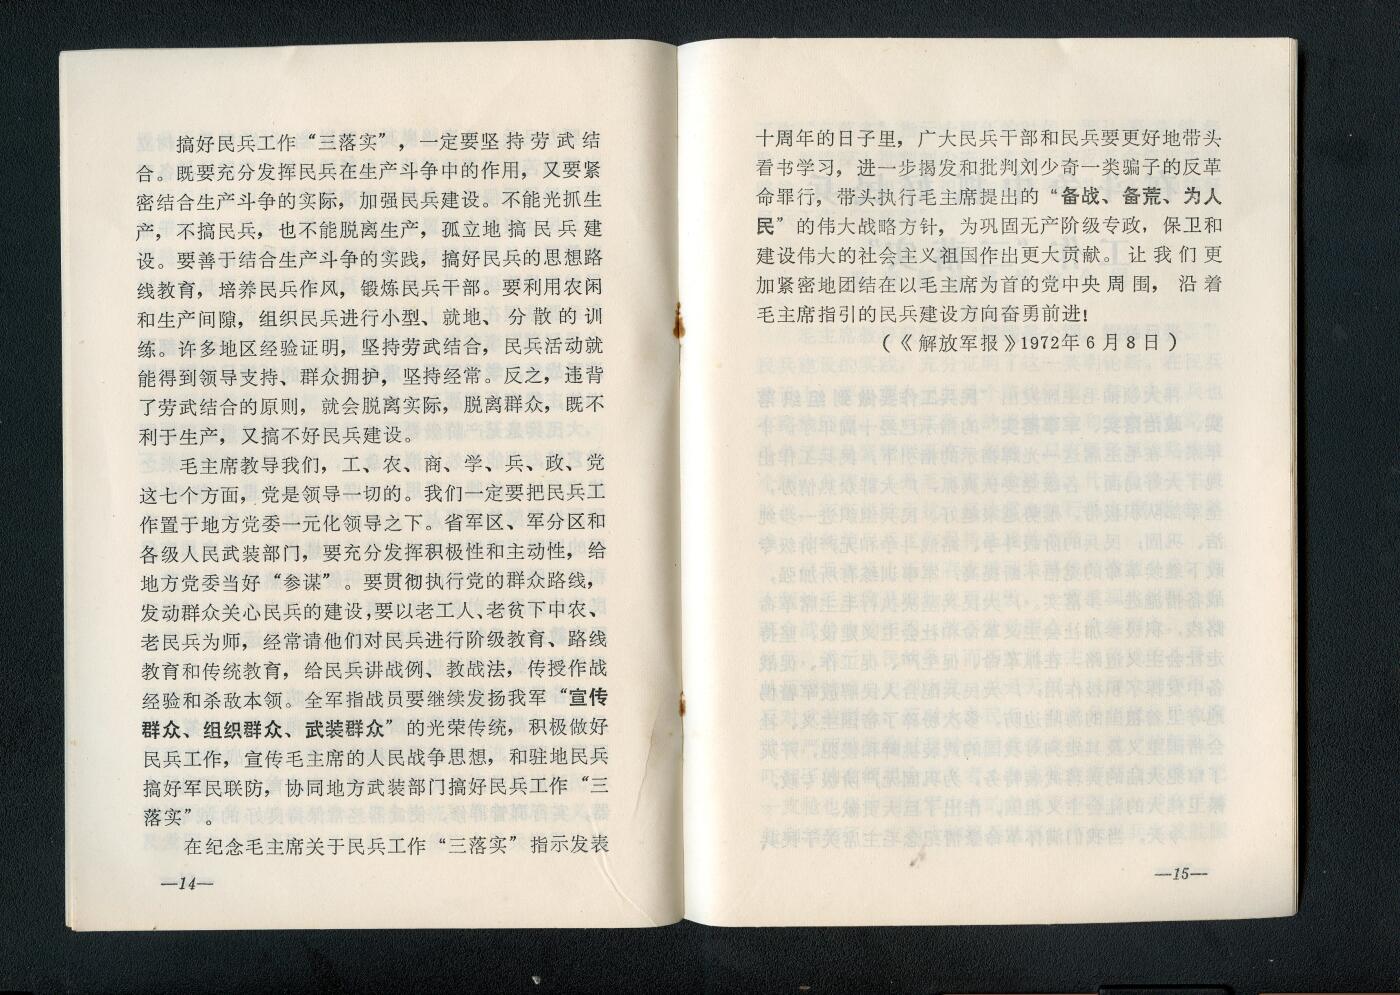 搞好民兵工作“三落实”，一定要坚持劳武结
合。既要充分发挥民兵在生产斗争中的作用，又要紧
密结合生产斗争的实际，加强民兵建设。不能光抓生
产，不搞民兵，也不能脱离生产，孤立地搞民兵建
设。要善于结合生产斗争的实践，搞好民兵的思想路
线教育，培养民兵作风，锻炼民兵干部。要利用农闲
和生产间隙，组织民兵进行小型、就地、分散的训
练。许多地区经验证明，坚持劳武结合，民兵活动就
能得到领导支持、群众拥护，坚持经常。反之，违背
了劳武结合的原则，就会脱离实际，脱离群众，既不
利于生产，又搞不好民兵建设。
毛主席教导我们，工、农、商、学、兵、政、党
这七个方面，党是领导一切的。我们一定要把民兵工
作置于地方党委一元化领导之下。省军区、军分区和
各级人民武装部门，要充分发挥积极性和主动性，给
地方党委当好“参谋”。要贯彻执行党的群众路线，
发动群众关心民兵的建设，要以老工人、老贫下中农、
老民兵为师，经常请他们对民兵进行阶级教育、路线
教育和传统教育，给民兵讲战例、教战法，传授作战
经验和杀敌本领。全军指战员要继续发扬我军“宣传
群众、组织群众、武装群众”的光荣传统，积极做好
民兵工作，宣传毛主席的人民战争思想，和驻地民兵
搞好军民联防，协同地方武装部门搞好民兵工作“三
落实”。
在纪念毛主席关于民兵工作“三落实”指示发表
—14—
十周年的日子里，广大民兵干部和民兵要更好地带头
看书学习，进一步揭发和批判刘少奇一类骗子的反革
命罪行，带头执行毛主席提出的“备战、备荒、为人
民”的伟大战略方针，为巩固无产阶级专政，保卫和
建设伟大的社会主义祖国作出更大贡献。让我们更
加紧密地团结在以毛主席为首的党中央周围，沿着
毛主席指引的民兵建设方向奋勇前进！
（《解放军报》1972年6月8日）
—15—